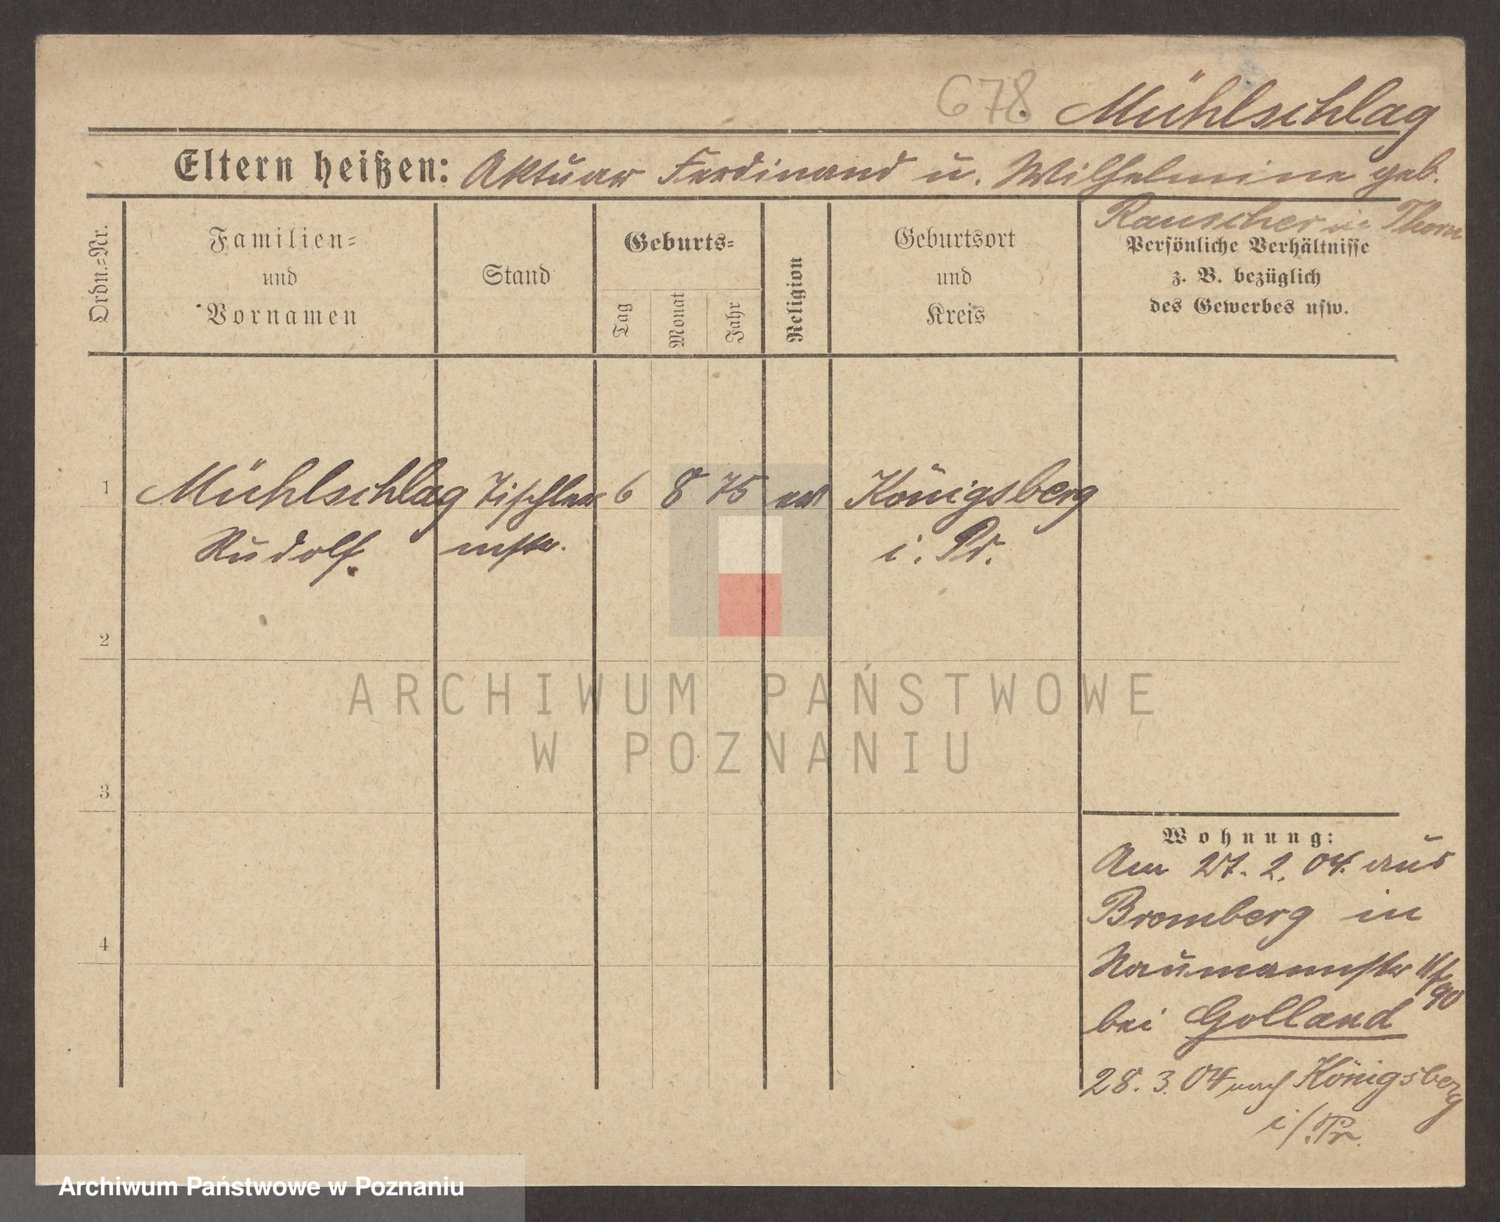 678. Mühlschlag
Eltern heißen: Aktuar Ferdinand u. Wilhelmine geb.
Rauscher in Thorn
Ordn.-Nr.
Familien-
und
Vornamen
Stand
Geburts-
Tag
Monat
Jahr
Religion
Geburtsort
und
Kreis
Persönliche Verhältnisse
z. B. bezüglich
des Gewerbes usw.
1 Mühlschlag Tischler 6 8 75 ev Königsberg
Rudolf. mstr. i. Pr.
2
ARCHIWUM PAŃSTWOWE
W POZNANIU
3
Wohnung:
Am 27. 2. 04. aus
Bromberg in
4
Naumannstr
bei Golland
28. 3. 04 nach Königsberg
i/Pr.
Archiwum Państwowe w Poznaniu